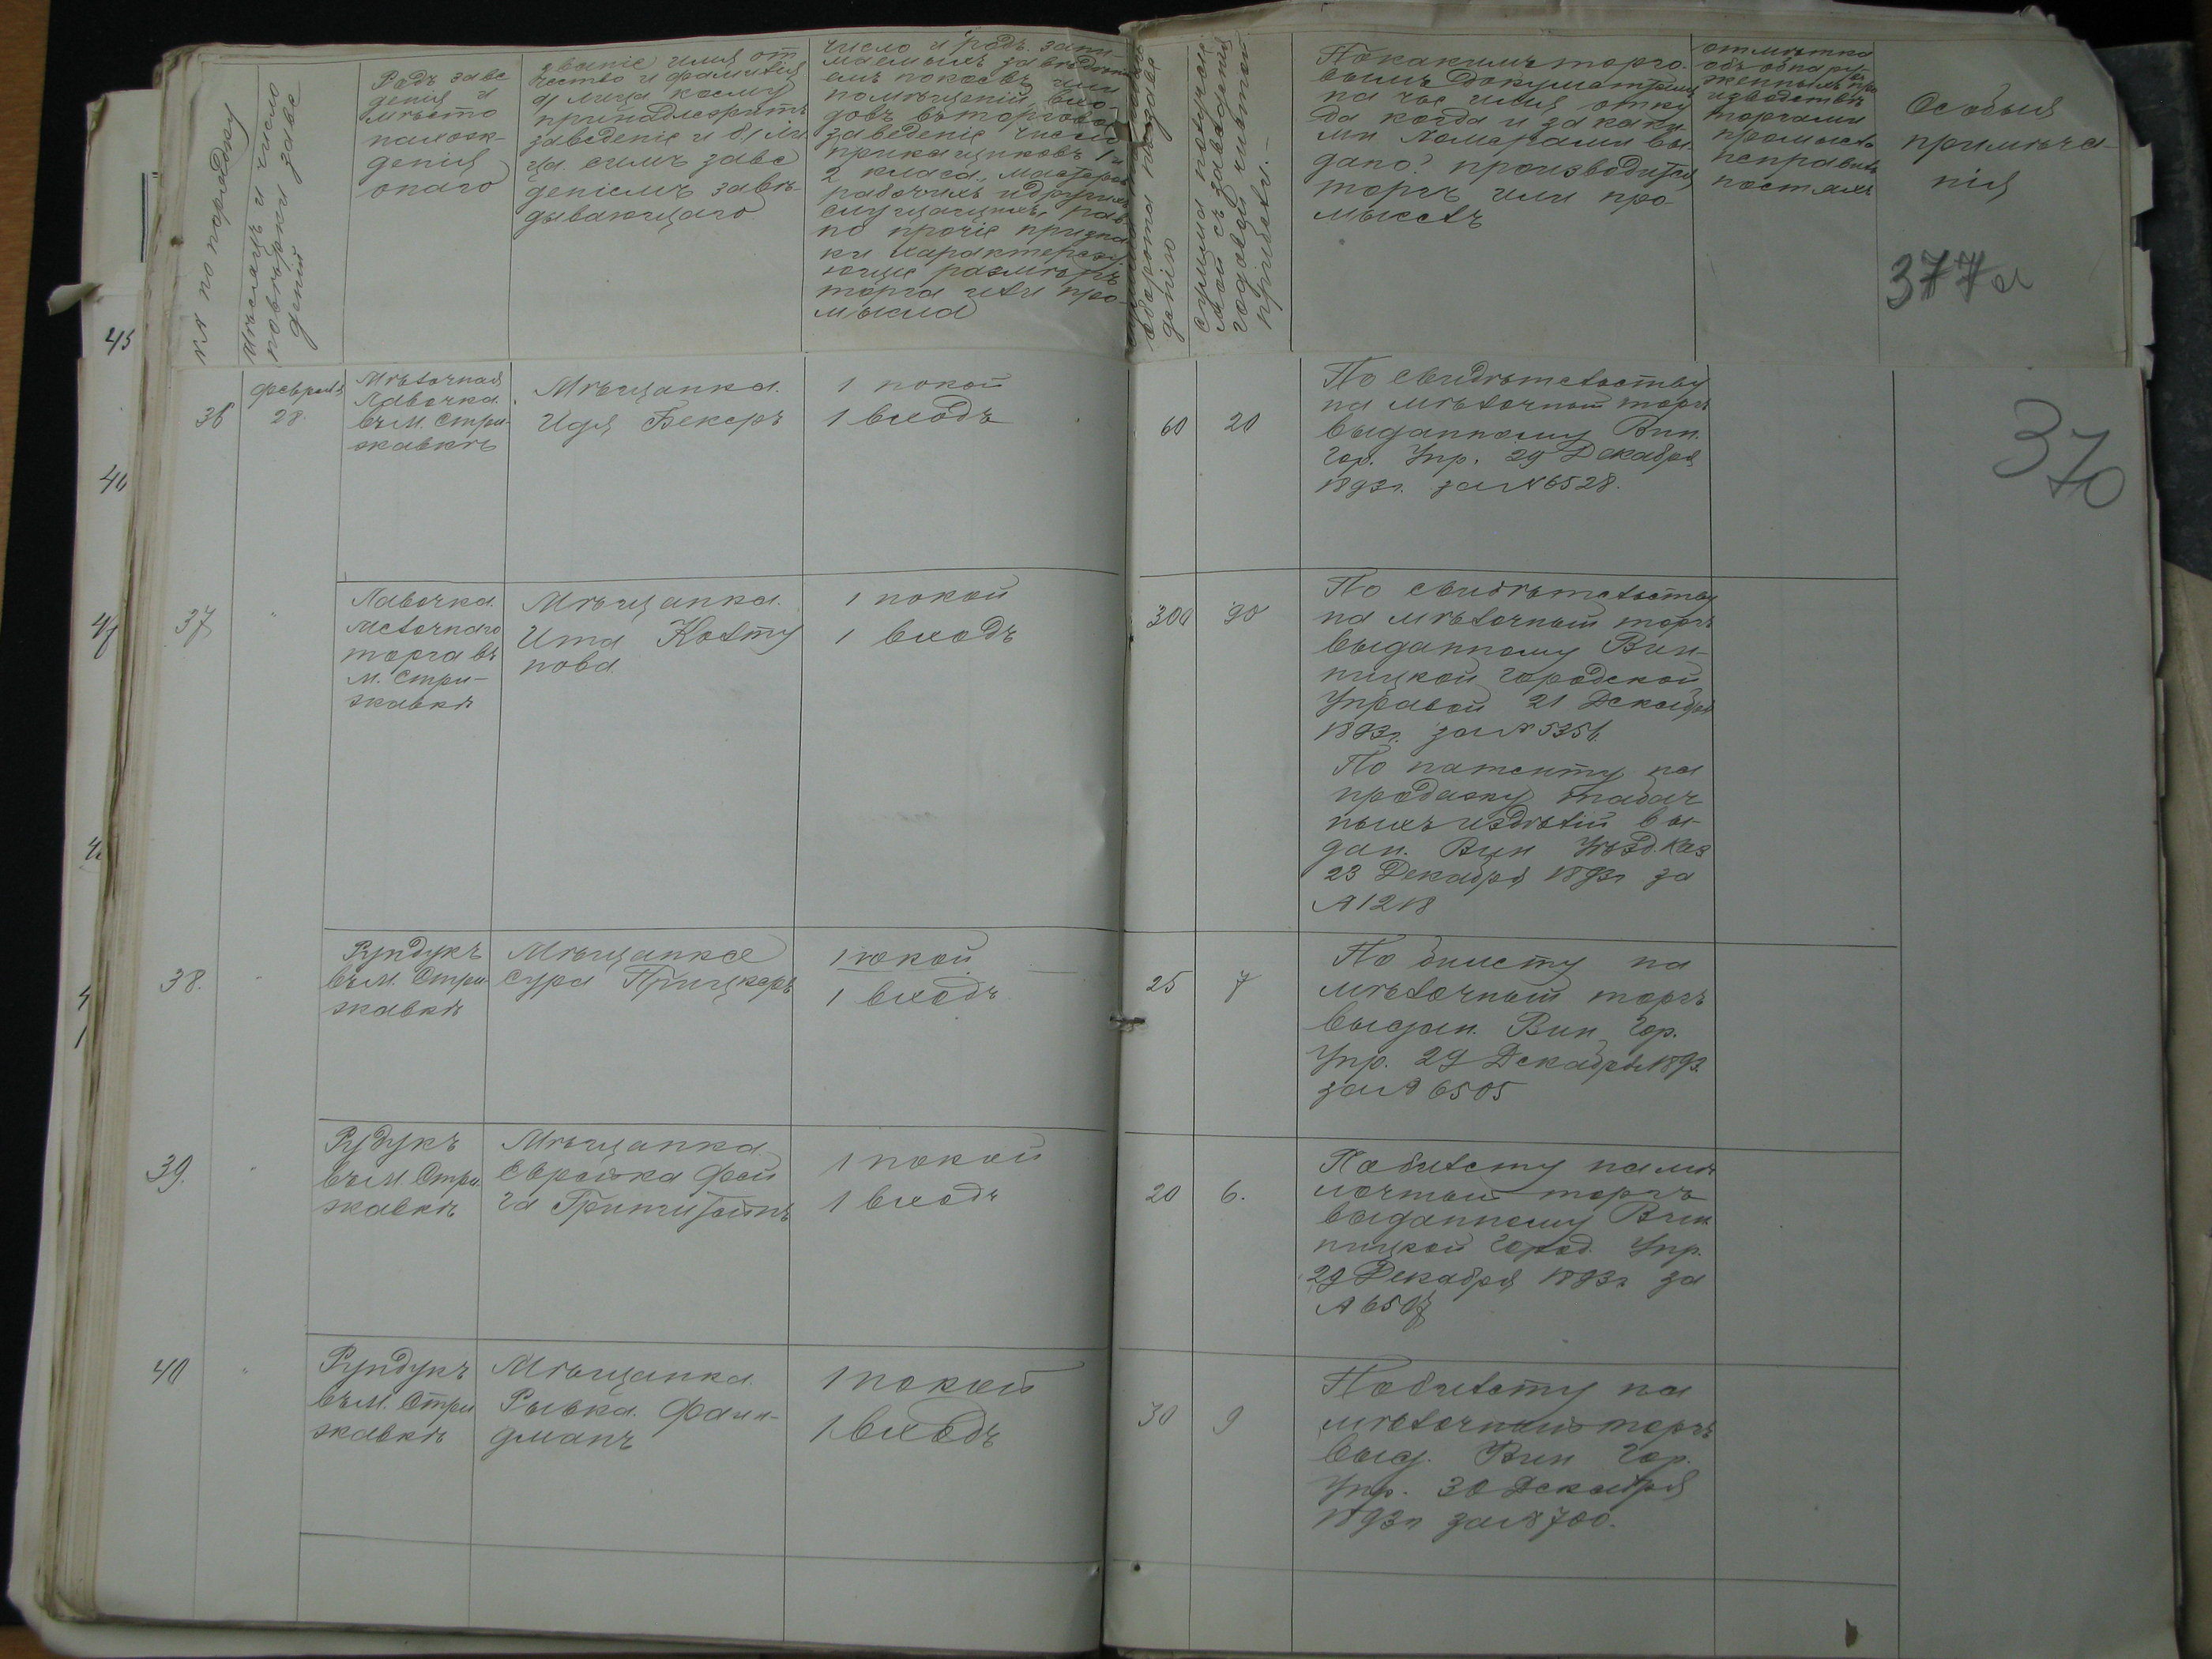 № по порядку
Мѣсяцъ и число
повѣрки заве
деній
Родъ заве
денія и
мѣсто
нахож-
денія
онаго
званіе имя от
чество и фамилія
а) лица коему
принадлежитъ
заведеніе и б) ли
ца симъ заве
деніемъ завѣ-
дывающаго
число и родъ зани
маемыхъ заведені
емъ покоевъ или
помѣщеній, вхо-
довъ въ торговое
заведеніе число
прикащиковъ 1 и
2 класа, мастеров
рабочихъ и других
служащихъ, рав
но прочіе призна
ки характеризу
ющіе размѣръ
торга или про-
мысла
оборота по заве
денію
сумма получае
мой съ заведенія
годовой чистой
прибыли. —
По какимъ торго-
вымъ документамъ
на чье имя отку
да когда и за каки
ми номерами вы
дано? производится
торгъ или про-
мыселъ
отмѣтка
объ обнару-
женныхъ про
изводствѣ
торговли
промысла
неправиль
ностяхъ
Особыя
примѣча-
нія
377а
370
36
Февраля
28.
Мѣлочная
Лавочка.
въ М. Стри-
жавкѣ
Мѣщанка.
Идя Бекеръ
1 покой
1 входъ
60 20
По свидѣтельству
на мѣлочный торгъ
выданному Вин.
Гор. Упр. 29 Декабря
1893г. за № 6528.
37 "
Лавочка.
мелочнаго
торга въ
м. Стри-
жавкѣ
Мѣщанка.
Ита Колту
нова.
1 покой
1 входъ
300 90
По свидѣтельству
на мѣлочный торгъ
выданному Вин-
ницкой Городской
Управой 21 Декабря
1893г. за № 5356.
По патенту на
продажу табач
ныхъ издѣлій вы-
дан. Вин Уѣзд. Каз
23 Декабря 1893г за
№ 1218
38. "
Рундукъ
въ М. Стри
жавкѣ
Мѣщанка
Сура Прицкеръ
1 покой
1 входъ
25 7
По билету на
мѣлочный торгъ
выдан. Вин Гор.
Упр. 29 Декабря 1893.
за № 6505
39. "
Рудукъ
въ М Стри
жавкѣ
Мѣщанка.
Еврейка Фей
га
1 покой
1 входъ
20 6.
По билету на мѣ
лочный торгъ
выданному Вин
ницкой Город. Упр.
29 Декабря 1893г за
№ 6507
40 "
Рундукъ
въ М. Стри
жавкѣ
Мѣщанка.
Рывка. Фаин-
дманъ
1 покой
1 входъ
30 9
По билету на
мѣлочный торгъ
выд. Вин Гор.
Упр. 30 Декабря
1893г за № 700.
45